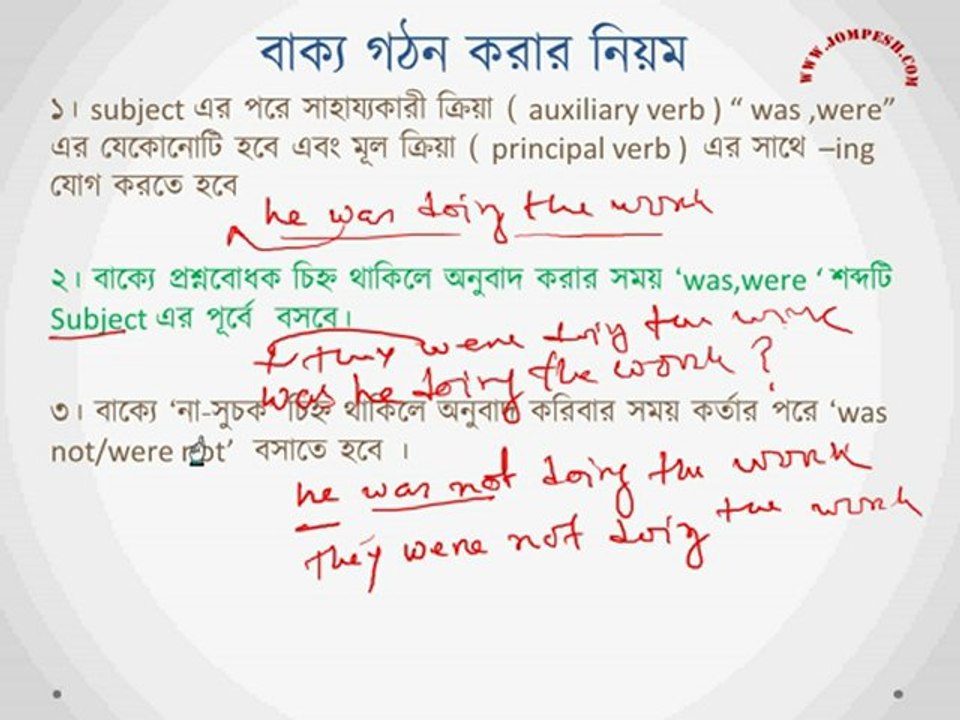 বাক্য গঠন করার নিয়ম
WWW.JOMPESH.COM
১। subject এর পরে সাহায্যকারী ক্রিয়া ( auxiliary verb ) “ was ,were”
এর যেকোনোটি হবে এবং মূল ক্রিয়া ( principal verb ) এর সাথে –ing
যোগ করতে হবে
he was doing the work
২। বাক্যে প্রশ্নবোধক চিহ্ন থাকিলে অনুবাদ করার সময় ‘was,were ‘ শব্দটি
Subject এর পূর্বে বসবে।
they were doing the work
was he doing the work ?
৩। বাক্যে ‘না-সুচক’ চিহ্ন থাকিলে অনুবাদ করিবার সময় কর্তার পরে ‘was
not/were not’ বসাতে হবে ।
he was not doing the work
They were not doing the work